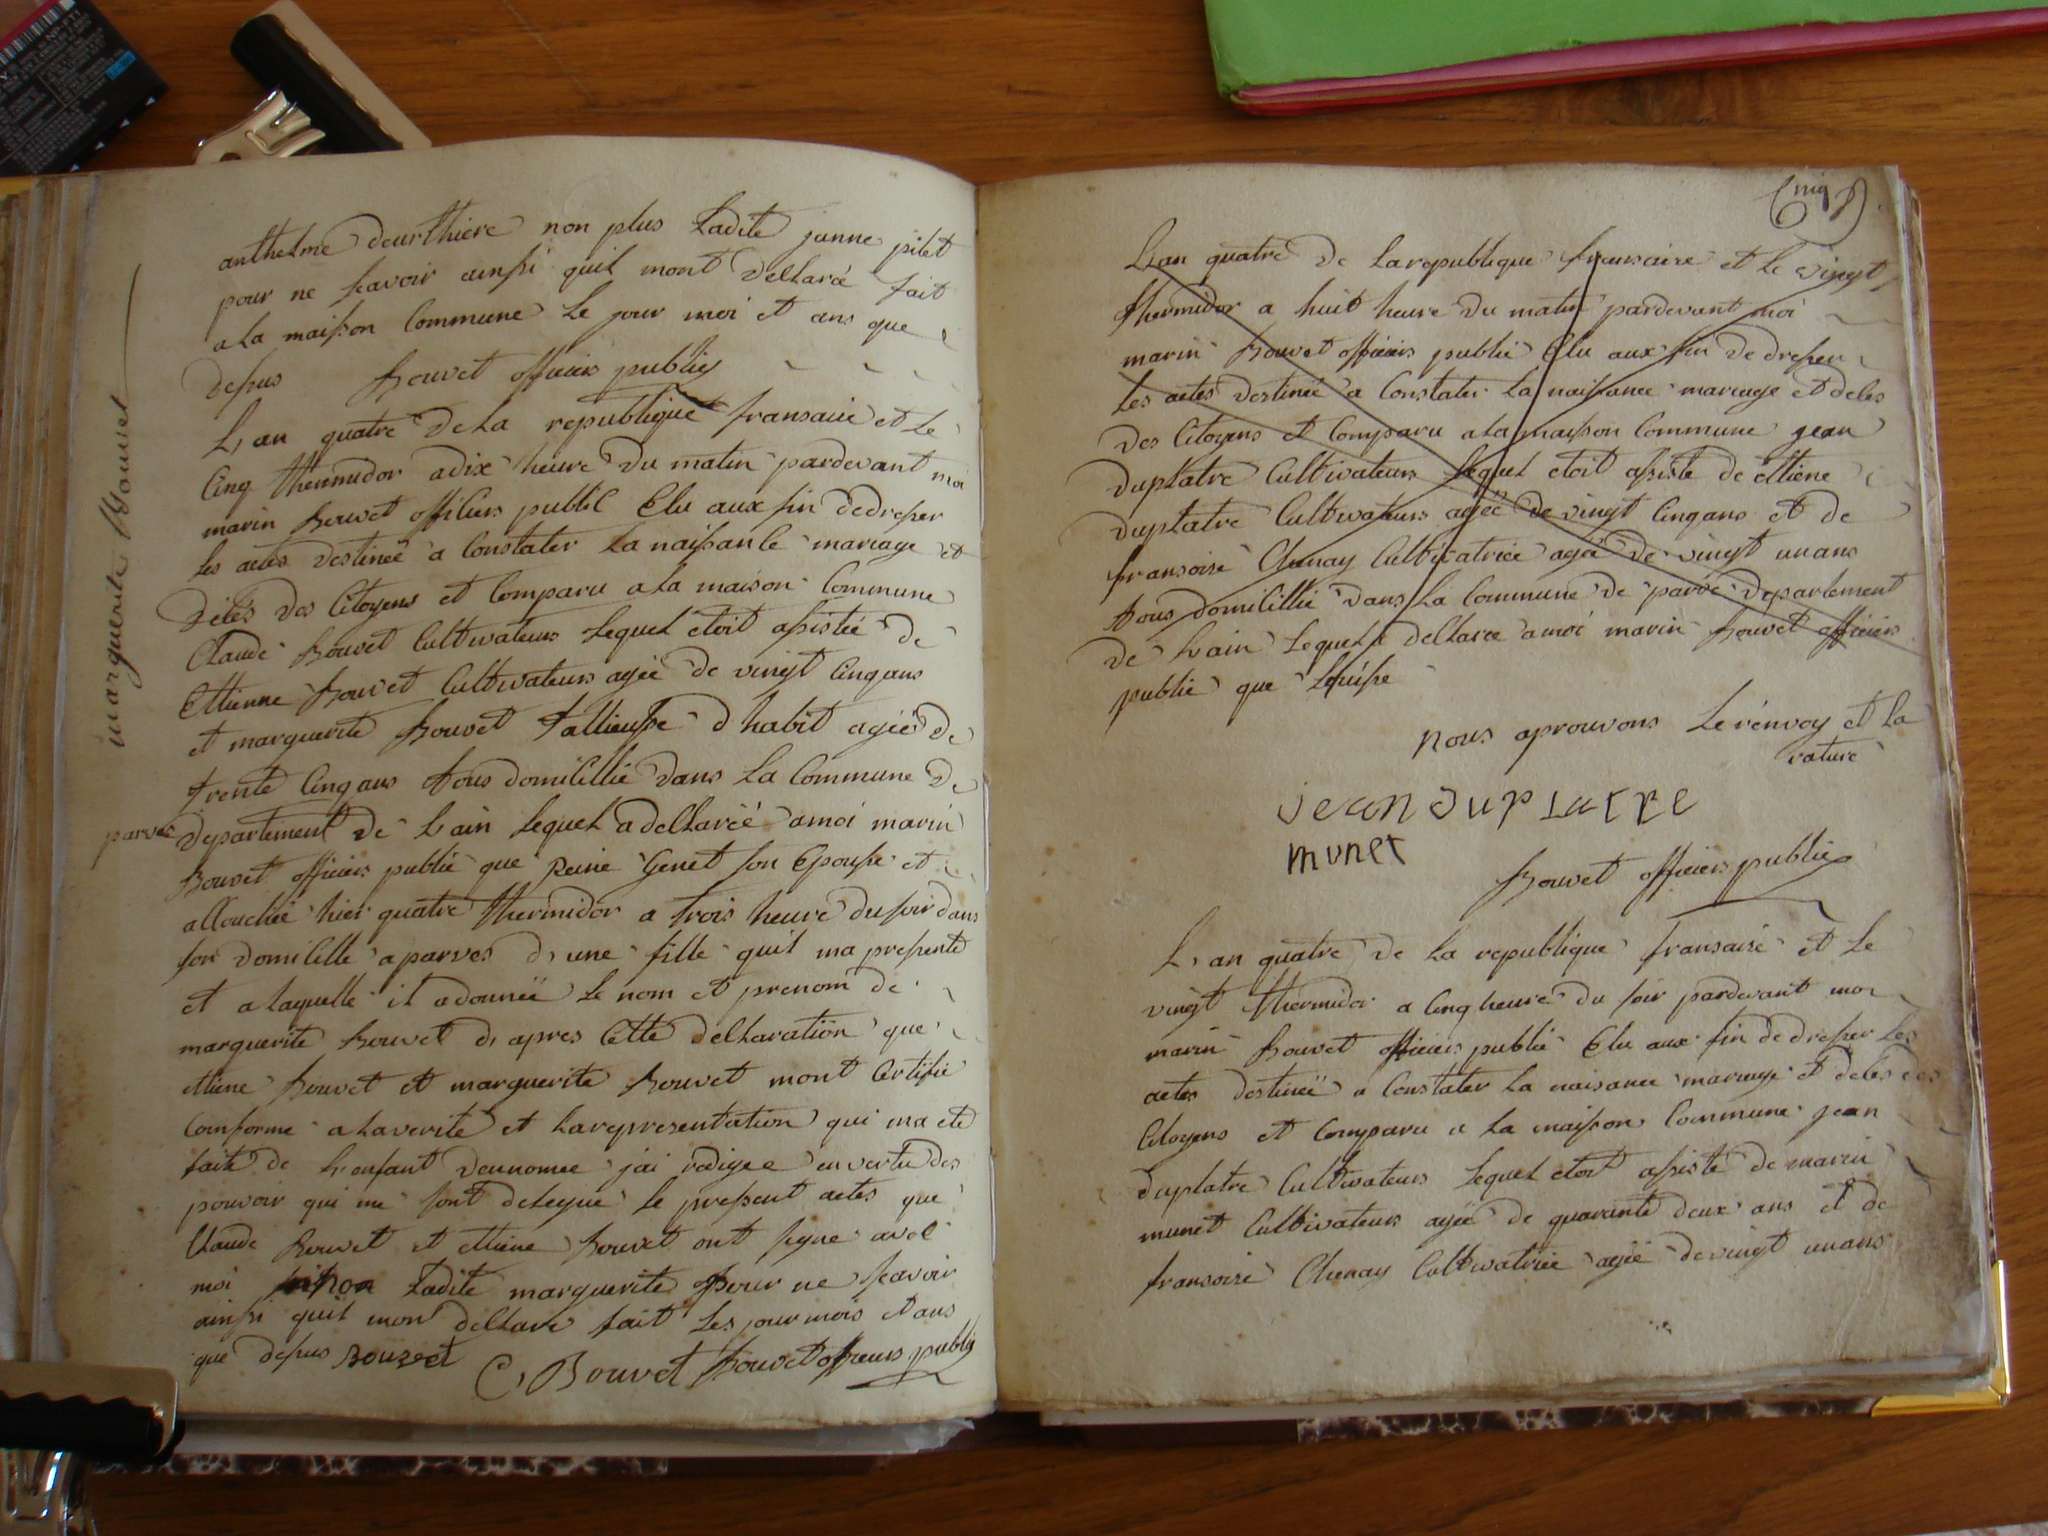 anthelme deurthiere non plus Ladite janne pilet
pour ne scavoir ainssi quil mont dellaré fait
a la maisson Commune Le jour moi et ans que
desus bouvet officiers publics
marguerite Bouvet
L,an quatre de La republique fransaise et Le
Cinq thermidor a dix heure du matin pardevant moi
marin bouvet officiers public Elu aux fin de dresser
Les actes destineé a Constater La naissance mariage et
déces des Citoyens et Comparu a La maison Commune
Claude bouvet Cultivateurs Lequel etoit assisteé de
Ettienne bouvet Cultivateurs ageé de vingt Cinq ans
et marguerite bouvet tallieusse d habit ageé de
trente Cinq ans tous domicillié dans La Commune de
parves departement de L ain Lequel a dellareé a moi marin
bouvet officiers public que Reine Genet son Epousse et
allouchée hier quatre thermidor a trois heure du soir dans
son domicille a parves d, une fille quil ma pressenté
et a laquelle il a donneé Le nom et prenom de
marguerite bouvet d, apres Cette dellaration que
ettiene bouvet et marguerite bouvet mont Certifié
Comforme a La verité et La representation qui ma eté
faite de L enfant denomee jai redigee en vertu des
pouvoir qui me sont delegué le pressent actes que
Claude bouvet et ettiene bouvet ont signe avec
moi non Ladite marguerite pour ne scavoir
ainssi quil mont dellare fait Les jour mois et ans
que desus bouvet C, Bouvet bouvet officiers public
Cinq
L,an quatre de La republique fransaise et le vingt
thermidor a huit heure du matin pardevant moi
marin bouvet officiers public Elu aux fin de dresser
Les actes destineé a Constater La naissance mariage et deces
des Citoyens et Comparu a La maisson Commune jean
duplatre Cultivateurs Lequel etoit assiste de ettiene
duplatre Cultivateurs ageé de vingt Cinq ans et de
fransoise Chenay Cultivatrice ageé de vingt un ans
tous domicillié dans La Commune de parve departement
de L ain Lequel a dellaree a moi marin bouvet officiers
public que
nous aprouvons Le renvoy et La
rature
jean duplatre
munet
bouvet officiers public
L, an quatre de La republique fransaise et Le
vingt thermidor a Cinq heure du soir pardevant moi
marin bouvet officiers public Elu aux fin de dresser Les
actes destineé a Constater La naisance mariage et deces des
Citoyens et Comparu a La maisson Commune jean
duplatre Cultivateurs Lequel etoit assisté de marin
munet Cultivateurs ageé de quarante deux ans et de
fransoise Chenay Cultivatrice ageé de vingt un ans